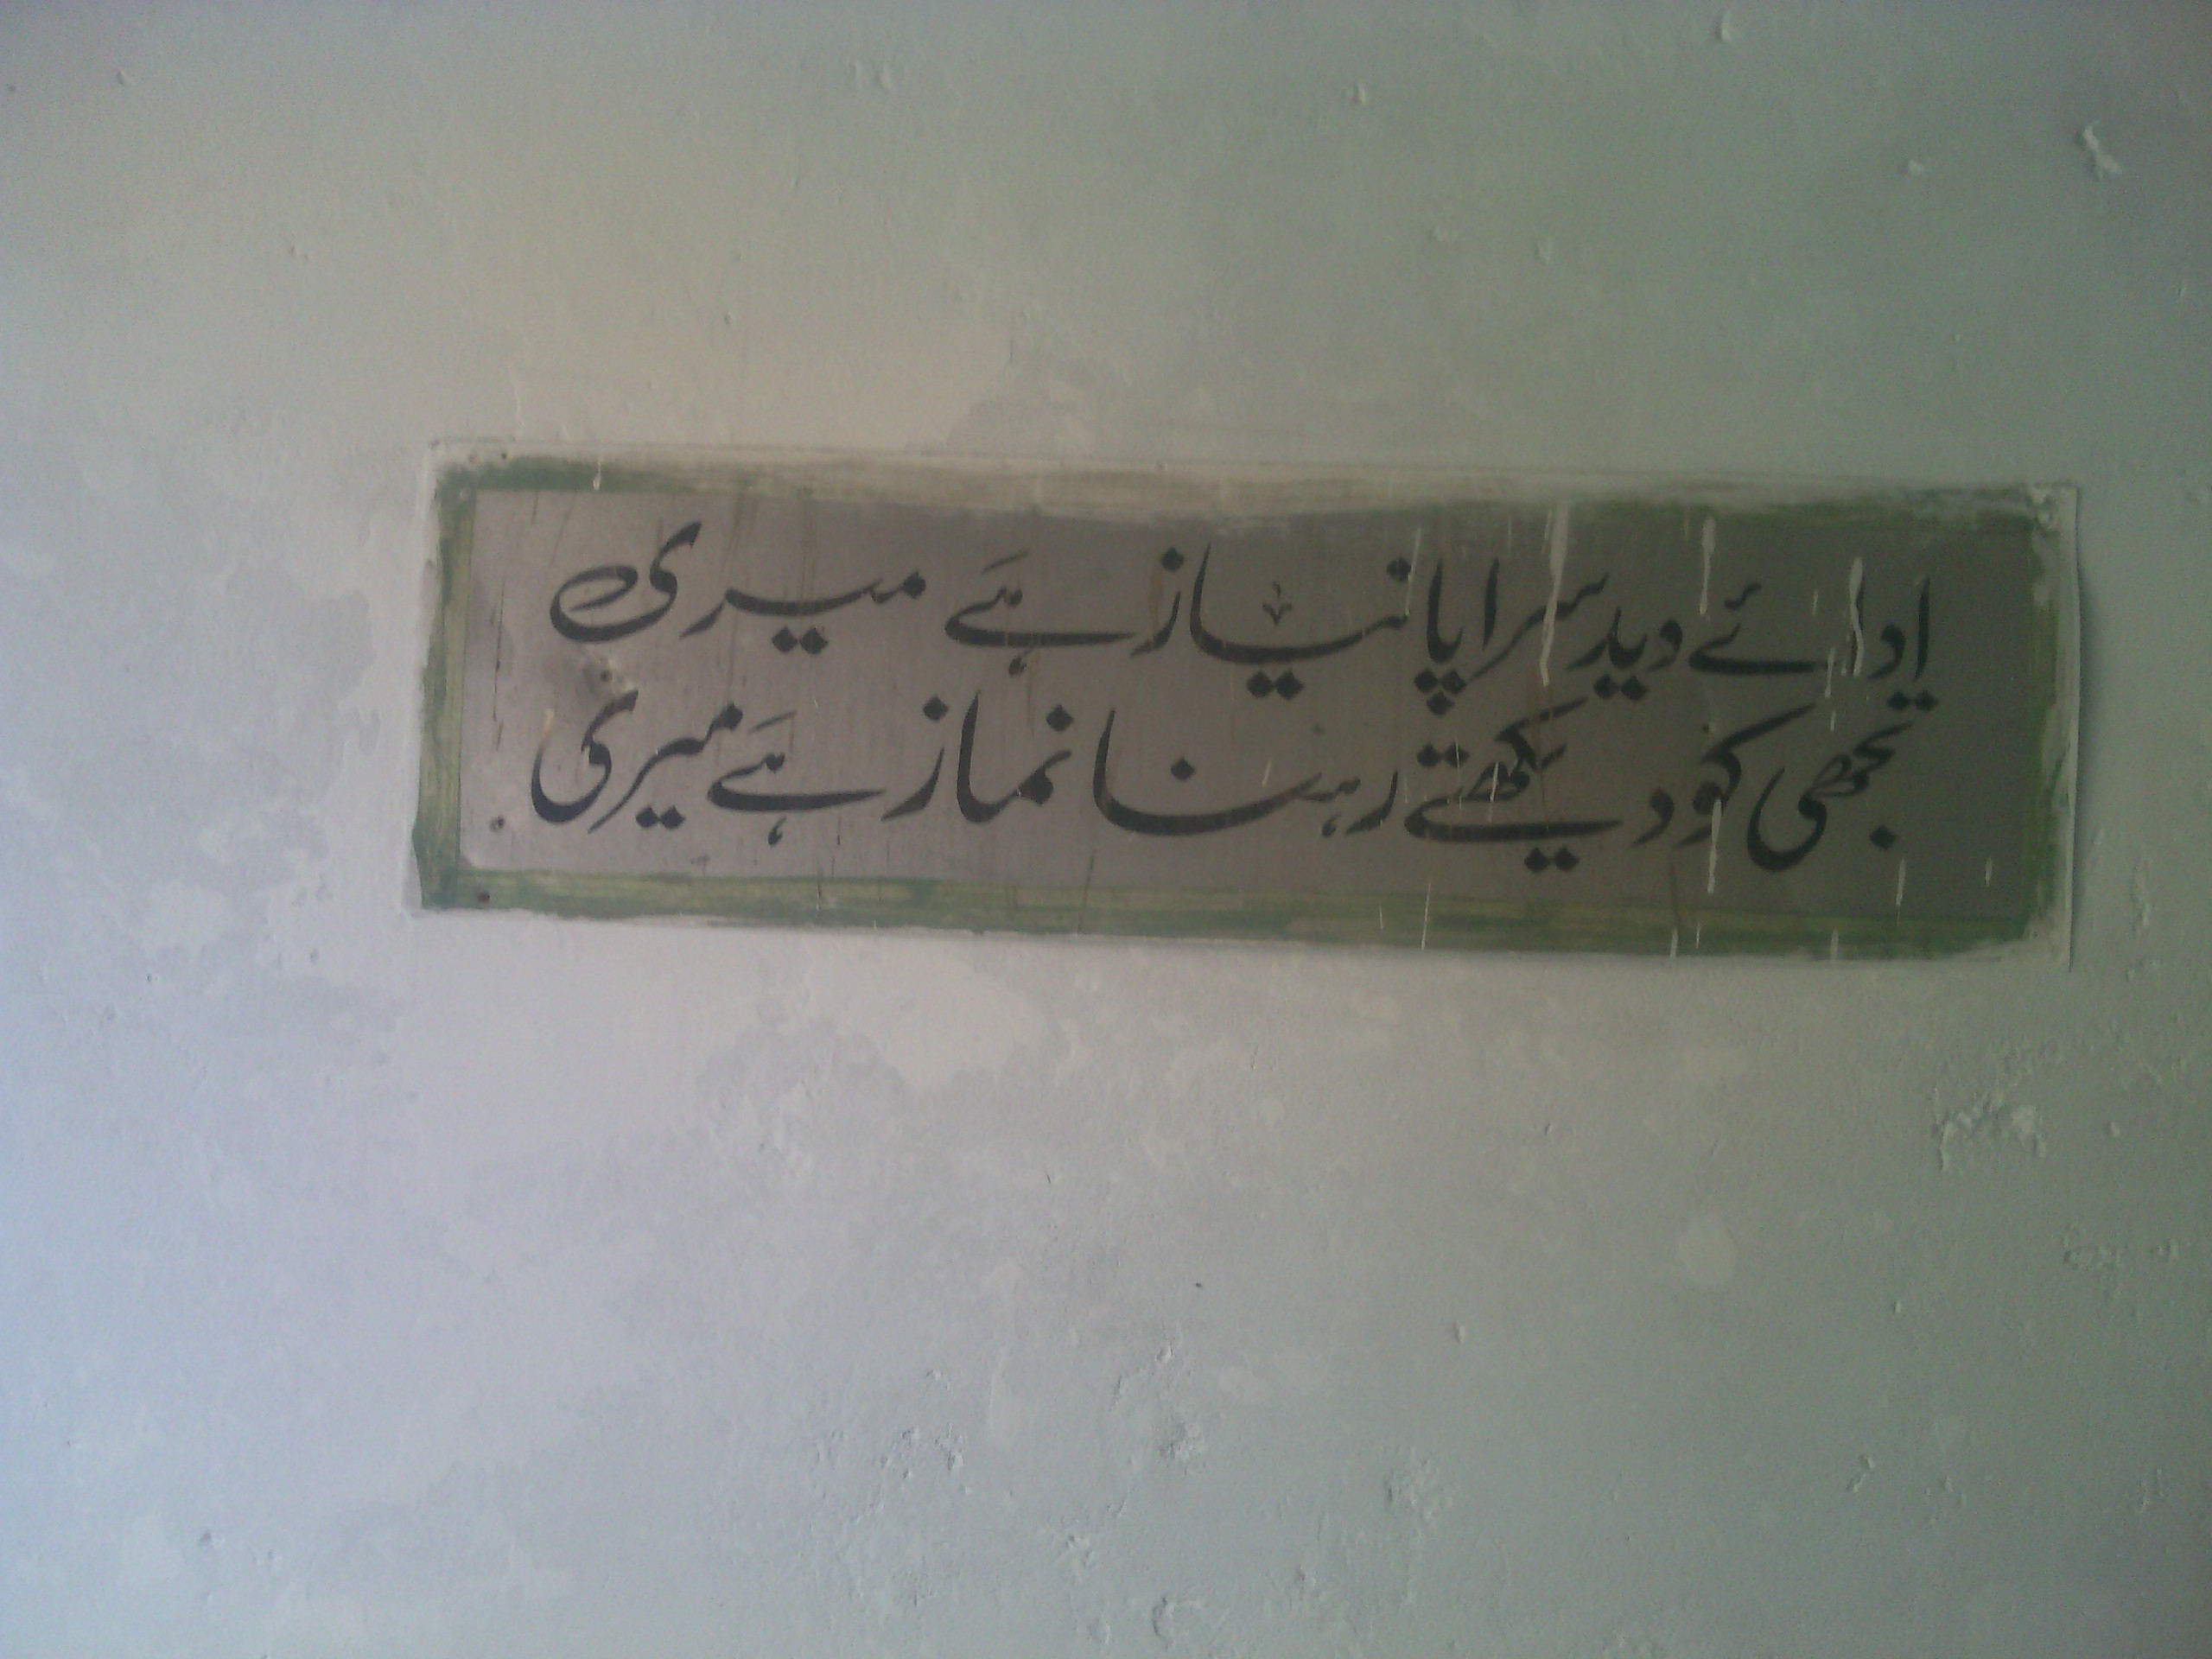 ادائے دید سراپا نیاز ہے میری
تجھی کو دیکھتے رہنا نماز ہے میری